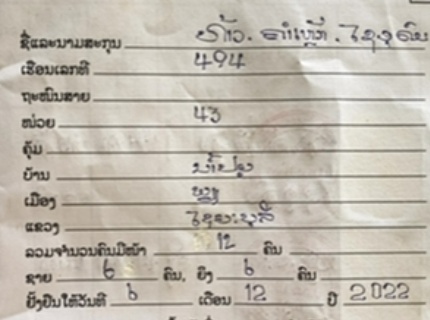 ຊື່ແລະນາມສະກຸນ ທ້າວ. ຄຳ
ເຮືອນເລກທີ 494
ຖະໜົນສາຍ
ໜ່ວຍ 43
ຄຸ້ມ
ບ້ານ
ເມືອງ
ແຂວງ ໄຊຍະບູລີ
ລວມຈຳນວນຄົນມີໜ້າ 12 ຄົນ
ຊາຍ 6 ຄົນ, ຍິງ 6 ຄົນ
ຍັ້ງຢືນໃຫ້ວັນທີ 6 ເດືອນ 12 ປີ 2022